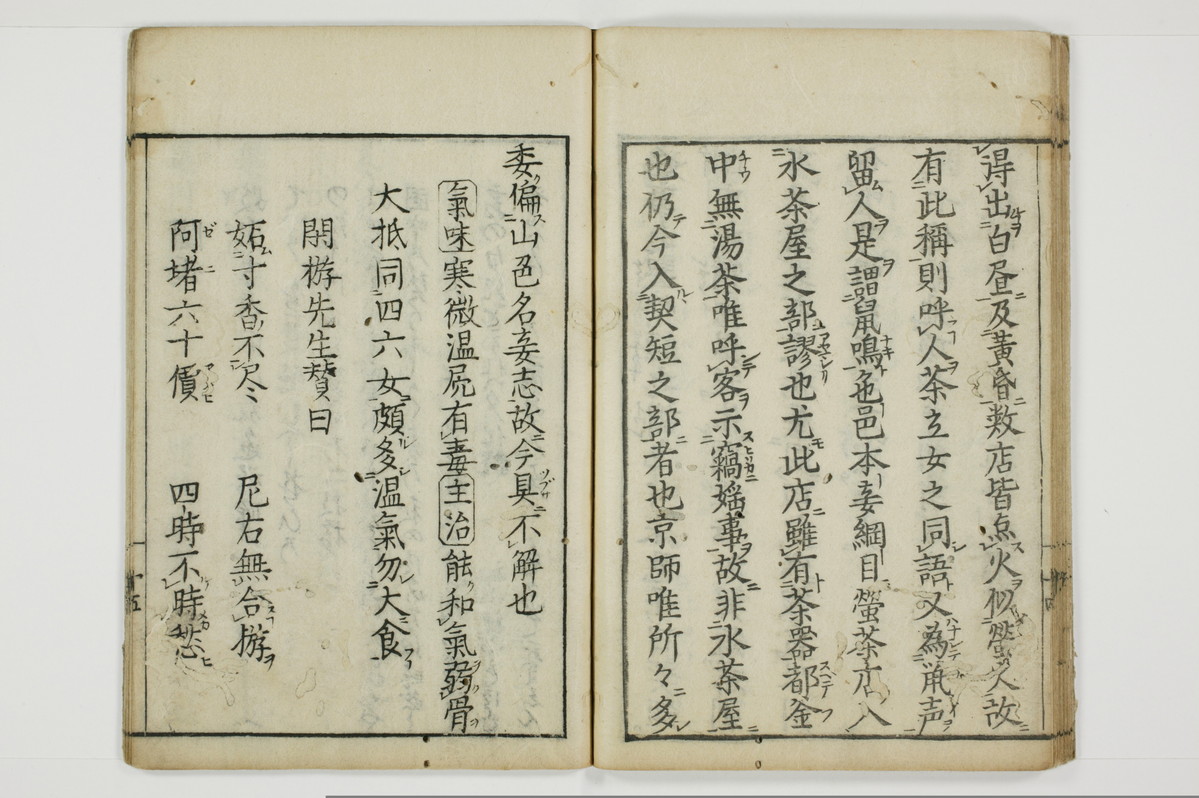 得出白昼及黄昏数店皆点火似蛍火故
有此稱則呼人茶立女之同語又為鼡声
留人是謂鼠鳴色邑本妾綱目螢茶亦入
水茶屋之部謬也尤此店雖有茶器都釜
中無湯茶唯呼客示竊婬事故非水茶屋
也仍今入契短之部者也京師唯所々多
委偏山邑名妾志故今具不解也
氣味寒微温屍有毒主治能和氣弱骨
大抵同四六女頗多温氣勿大食
閑栘先生賛曰
妬寸香不尽 尼右無合栘
阿堵六十價 四時不時愁